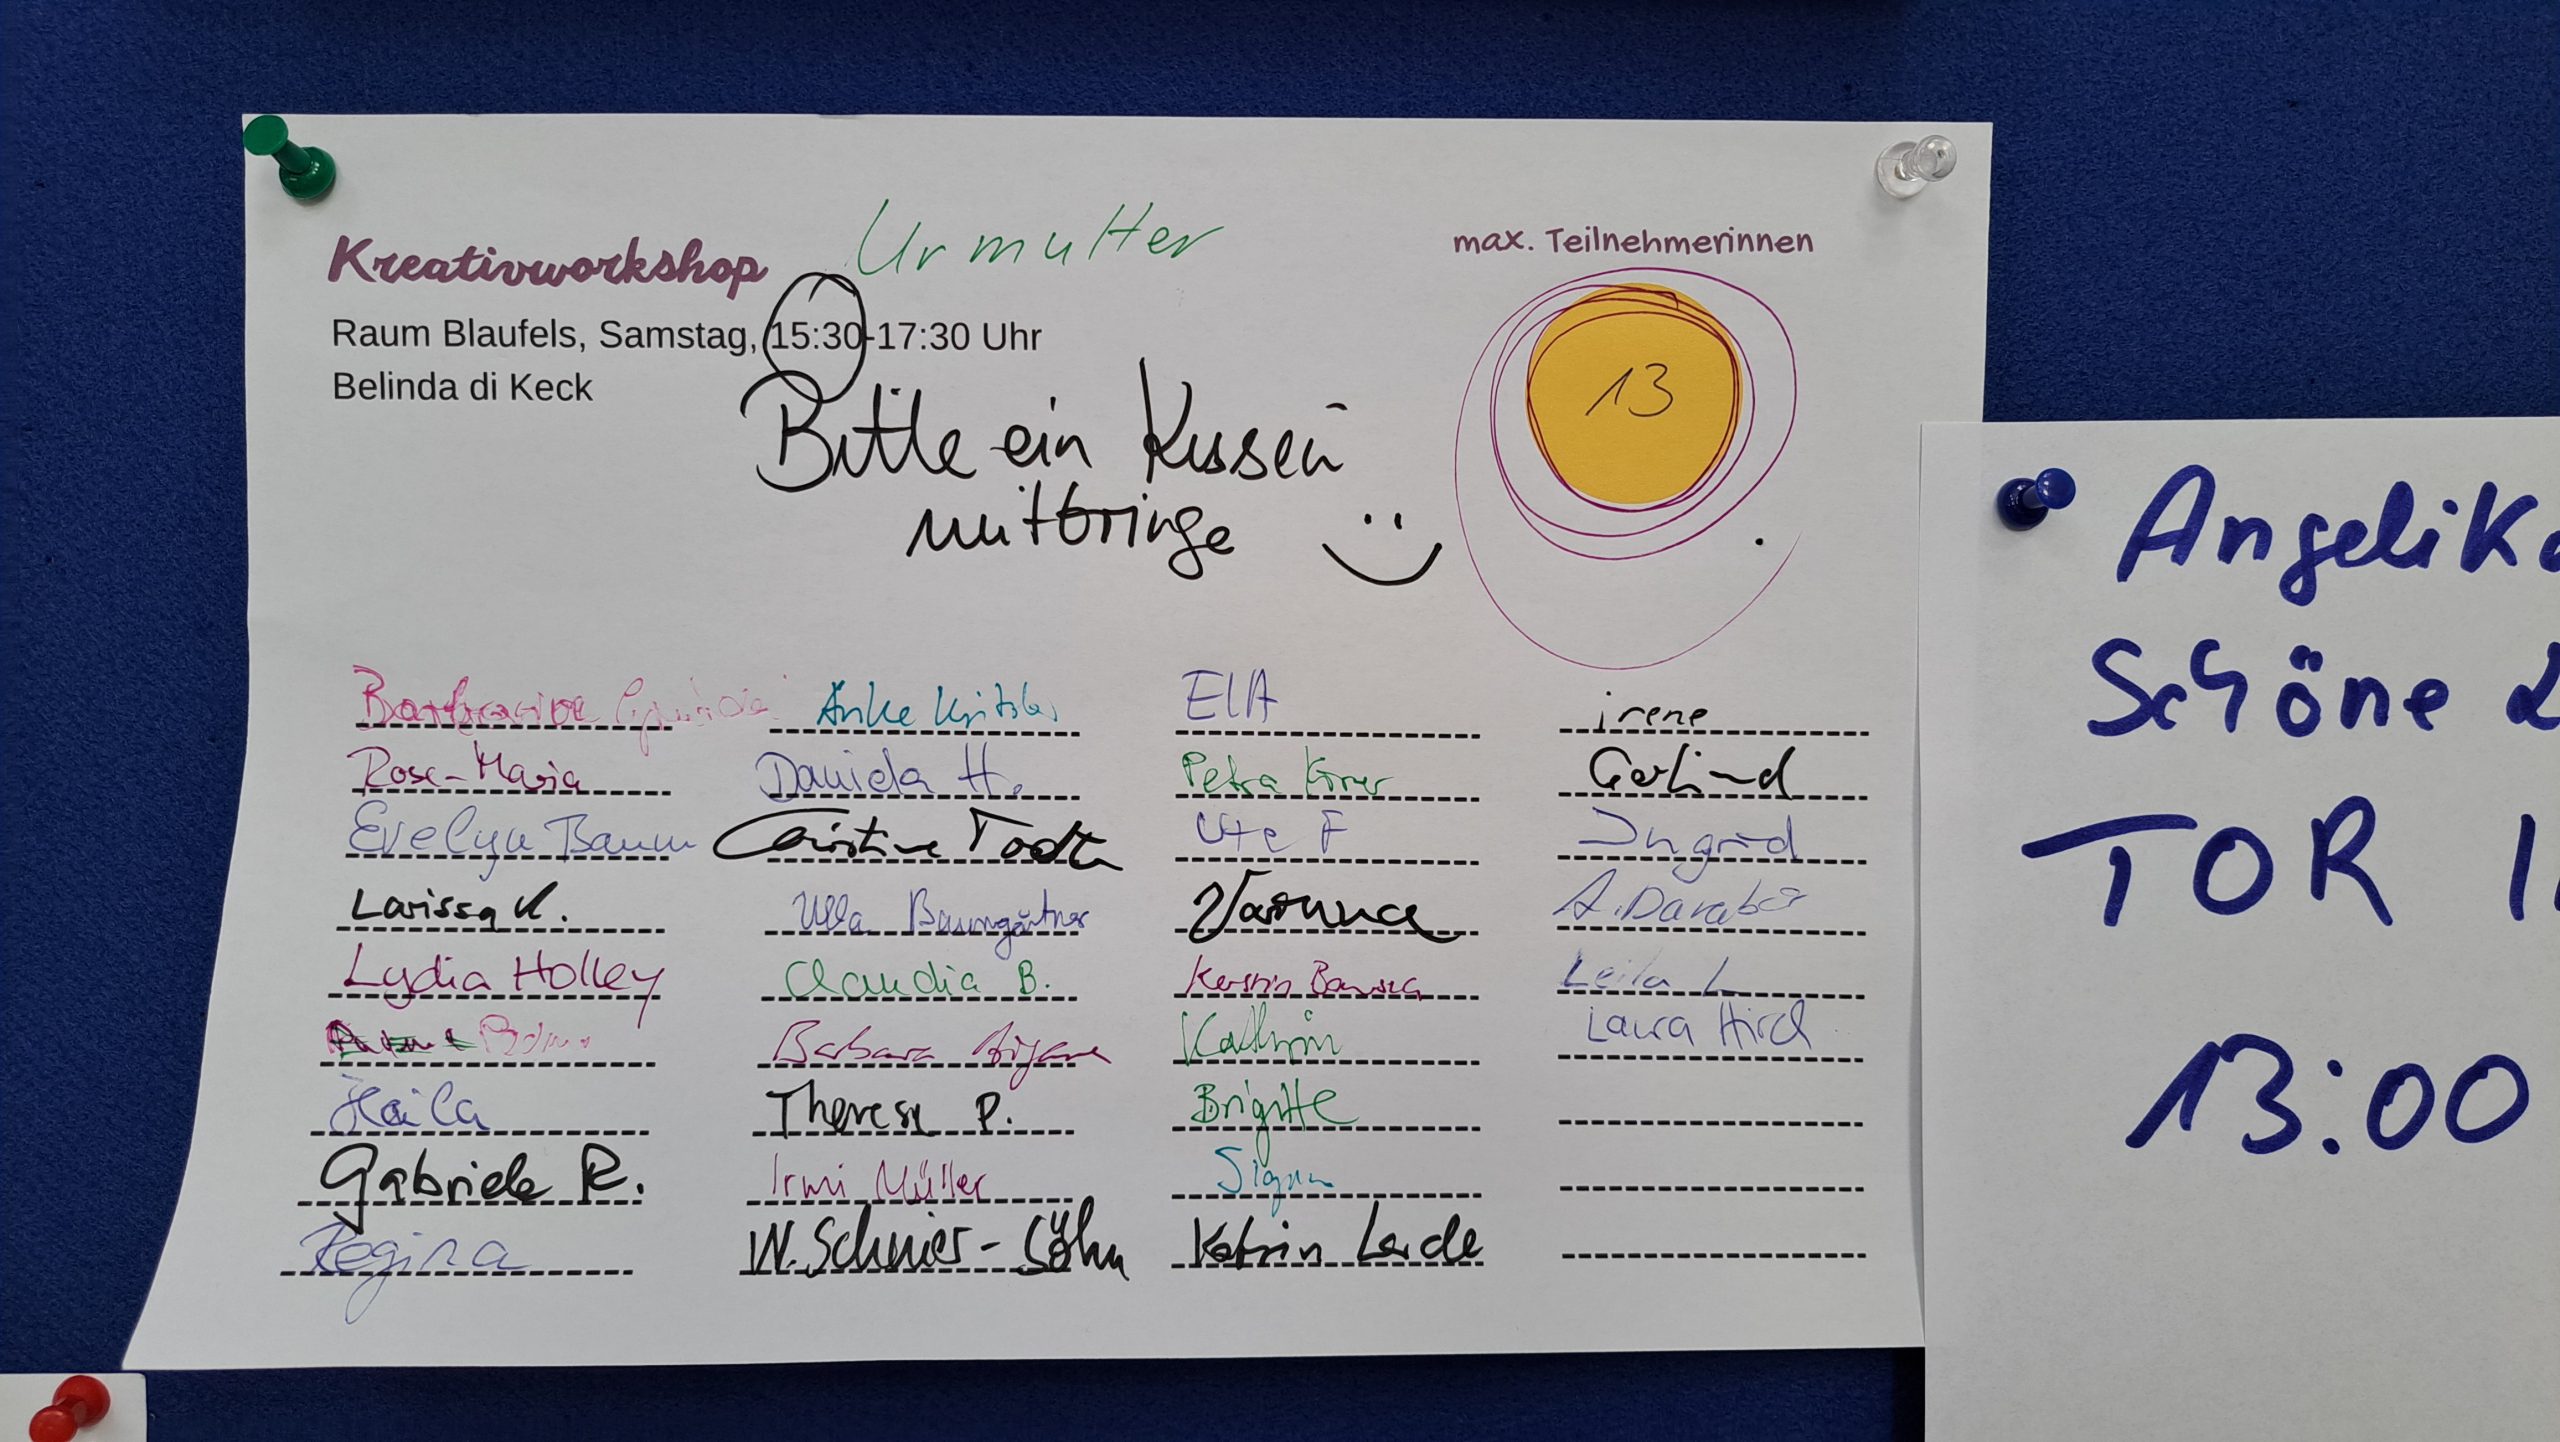 Kreativworkshop Urmutter
max. Teilnehmerinnen
13
Raum Blaufels, Samstag, 15:30-17:30 Uhr
Belinda di Keck
Bitte ein Kissen
mitbringe
Anke
ElA
irene
Rose-Maria
Daniela H.
Petra
Gerlind
Evelyn Baum
Christine Todt
Ute F
Ingrid
Larissa K.
Ulla Baumgärtner
Verunca
A. Darabos
Lydia Holley
Claudia B.
Kerstin
Leila L
Barbara
Kathrin
Laura Hird
Haila
Therese P.
Brigitte
Gabriele R.
Irmi Müller
Sigrun
Regina
W. Schnier-Söhn
Katrin Lerde
Angelika
Schöne
TOR
13:00